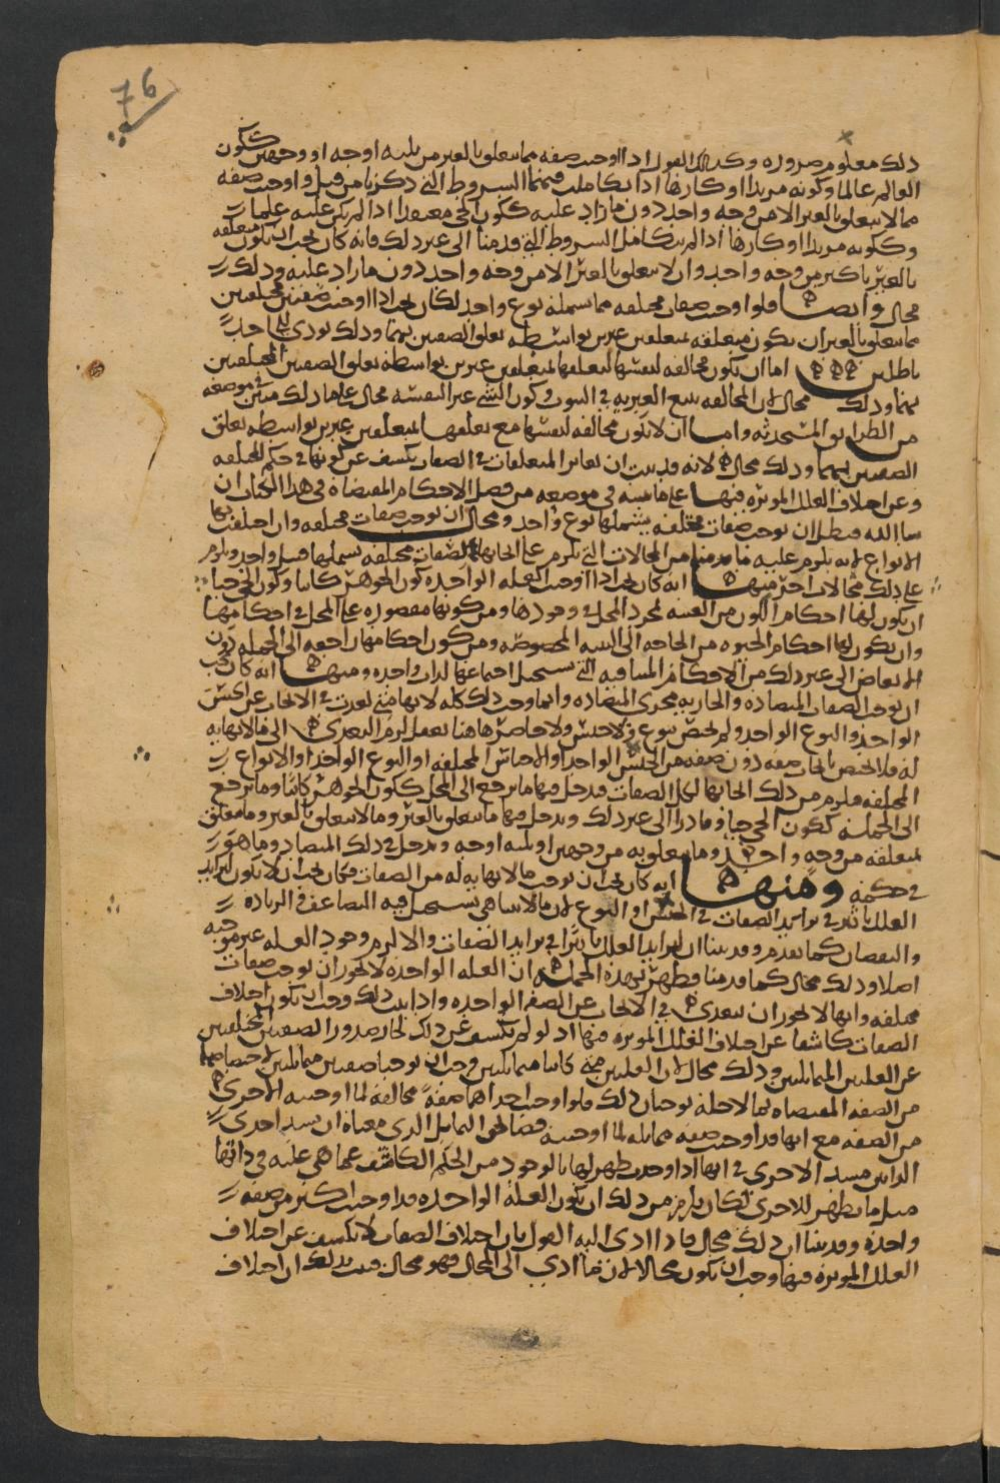 76
ذلك معلوم ضرورة وكذلك القول اذا اوجب صفه مما يتعلق بالغير من ثلثه اوجه او وجهين ككون
العالم عالما وكونه مريدا او كارها اذا تكاملت فيهما الشروط التي ذكرنا من قبل او اوجب صفه
مما لا يتعلق بالغير الا من وجه واحد دون ما زاد عليه ككون الحي معتقدا اذا لم يكن عليه علما
وككونه مريدا او كارها اذا لم يتكامل الشروط التي قدمنا الى غير ذلك فانه كان يجب ان يكون متعلقه
بالغير باكثر من وجه واحد وان لا يتعلق بالغير الا من وجه واحد دون ما زاد عليه وذلك
محال وايضا فلو اوجب صفات مختلفه مما يشمله نوع واحد لكان يجب اذا اوجب صفتين مختلفتين
مما يتعلق بالغير ان يكون متعلقه بمتعلقين غيرين بواسطه تعلق الصفتين بهما وذلك يودي الى احد
باطلين اما ان يكون مخالفه لنفسها لتعلقها بمتعلقين غيرين بواسطه تعلق الصفتين المختلفتين
بهما وذلك محال لان المخالفه تتبع الغيريه في الثبوت وكون الشي غير النفسه محال على ما ذلك مبين في موضعه
من الطرايق المستحدثه واما ان لا يكون مخالفه لنفسها مع تعلقها بمتعلقين غيرين بواسطه تعلق
الصفتين بهما وذلك محال لانه قد ثبت ان تغاير المتعلقات في الصفات يكشف عن كونها في حكم المختلفه
وعن اختلاف العلل الموثره فيها على ما نبينه في موضعه من فصل الاحكام المقتضاه في هذا الكتاب ان
شا الله فبطل ان يوجب صفات مختلفه يشملها نوع واحد ومحال ان يوجب صفات مختلفه وان اختلفت بها
الانواع لانه يلزم عليه ما قدمنا من المحالات التي تلزم على ايجابها لصفات مختلفه يشملها قبيل واحد ويلزم
على ذلك محالات اخر منها انه كان يجب اذا اوجبت العله الواحده كون الجوهر كاينا وكون الحي حيا
ان يكون لها احكام الكون من الغنيه بمجرد المحل في وجودها ومن كونها مقصوره على المحل في احكامها
وان يكون لها احكام الحيوه من الحاجه الى البنيه المخصوصه ومن كون احكامها راجعه الى الجمله دون
الابعاض الى غير ذلك من الاحكام المتنافيه التي يستحيل اجتماعها لذات واحده ومنها انه كان يجب
ان يوجب الصفات المتضاده والجاريه مجرى المتضاده وانما وجب ذلك كله لانها متى تعدت في الايجاب عن الجنس
الواحد والنوع الواحد ولم يختص بنوع ولا جنس ولا حاصر هاهنا يعقل لزم التعدي الى ما لا نهايه
له فلا يختص بايجاب صفه دون صفه من الجنس الواحد او الاجناس المختلفه او النوع الواحد او الانواع
المختلفه فلزم من ذلك ايجابها لكل الصفات فدخل فيها ما يرجع الى المحل ككون الجوهر كاينا وما يرجع
الى الجمله ككون الحي حيا وقادرا الى غير ذلك ويدخل فيها ما يتعلق بالغير وما لا يتعلق بالغير وما يتعلق
بمتعلقه من وجه واحد وما يتعلق به من وجهين او ثلثه اوجه ويدخل في ذلك المتضاد وما هو
في حكمه ومنها انه كان يجب ان يوجب ما لا نهايه له من الصفات فكان يجب ان لا يكون لتزايد
العلل تاثير في تزايد الصفات في الجنس او النوع لان ما لا يتناهى يستحيل فيه التضاعف في الزياده
والنقصان كما تقدم وقد بينا ان لتزايد العلل تاثيرا في تزايد الصفات والا لزم وجود العله غير موجبه
اصلا وذلك محال كما قدمنا فظهر بهذه الجمله ان العله الواحده لا يجوز ان يوجب صفات
مختلفه وانها لا يجوز ان يتعدى في الايجاب عن الصفه الواحده واذا ثبت ذلك وجب ان يكون اختلاف
الصفات كاشفا عن اختلاف العلل الموثره فيها اذ لو لم يكشف عن ذلك لجاز صدور الصفتين المختلفتين
عن العلتين المتماثلتين وذلك محال لان العلتين متى كانتا متماثلتين وجب ان يوجبا صفتين متماثلتين لاختصاصهما
من الصفه المقتضاه بما لاجله يوجبان ذلك فلو اوجب احداهما صفه مخالفه لما اوجبته الاخرى
من الصفه مع انها قد اوجبت صفه مماثله لما اوجبته قضا لحق التماثل الذي معناه ان يسد احدى
الذاتين مسد الاخرى في انها اذا وجدت ظهر لها بالوجود من الحكم الكاشف عما هي عليه في ذاتها
مثل ما يظهر للاخرى لكان يلزم من ذلك ان يكون العله الواحده قد اوجبت اكثر من صفه
واحده وقد بينا ان ذلك محال فاذا ادى اليه القول بان اختلاف الصفات لا يكشف عن اختلاف
العلل الموثره فيها وجب ان يكون محالا لان ما ادى الى المحال فهو محال فثبت بذلك ان اختلاف